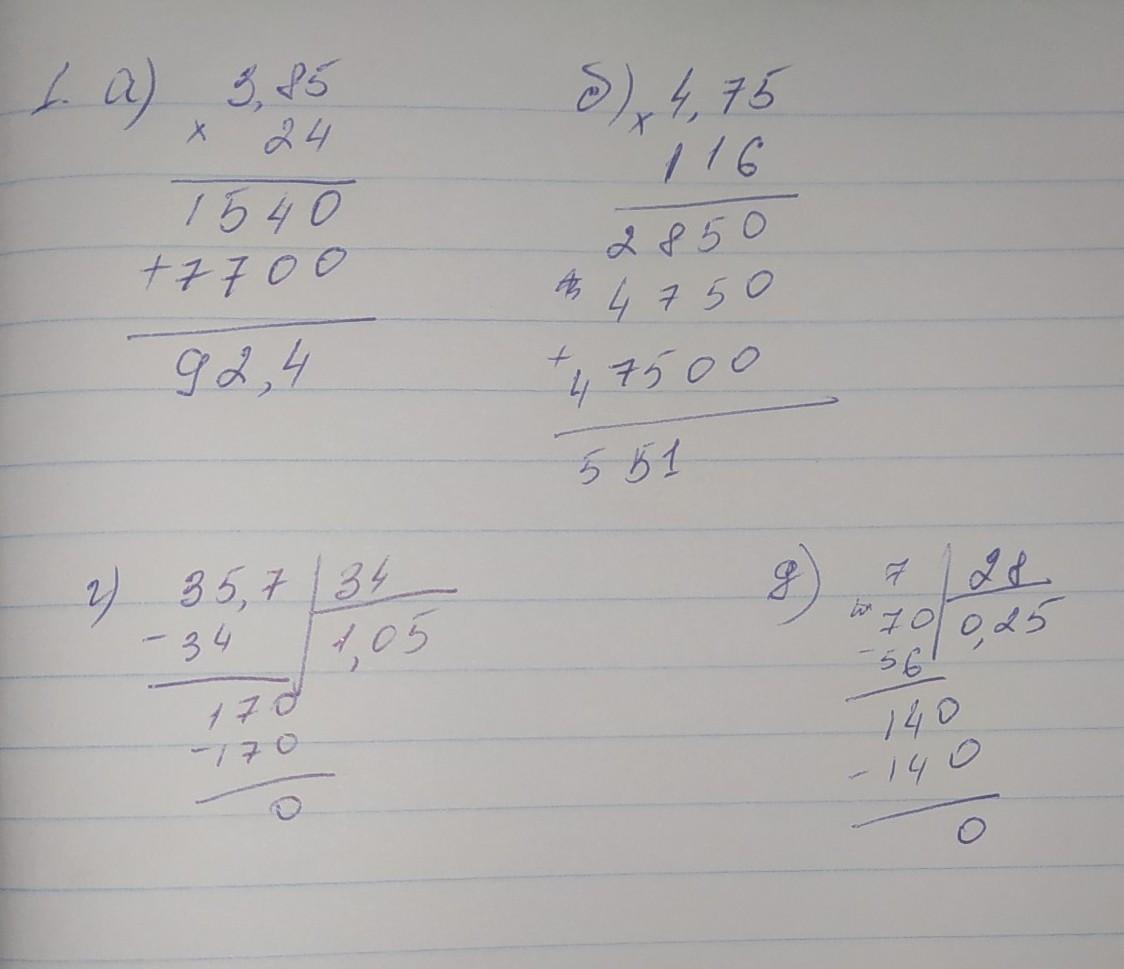 1. а) 3,85
× 24
1540
+7700
92,4
б) × 4,75
116
2850
4750
+ 47500
551
г) 35,7 | 34
- 34 1,05
170
-170
0
д) 7 | 28
70 0,25
-56
140
- 140
0